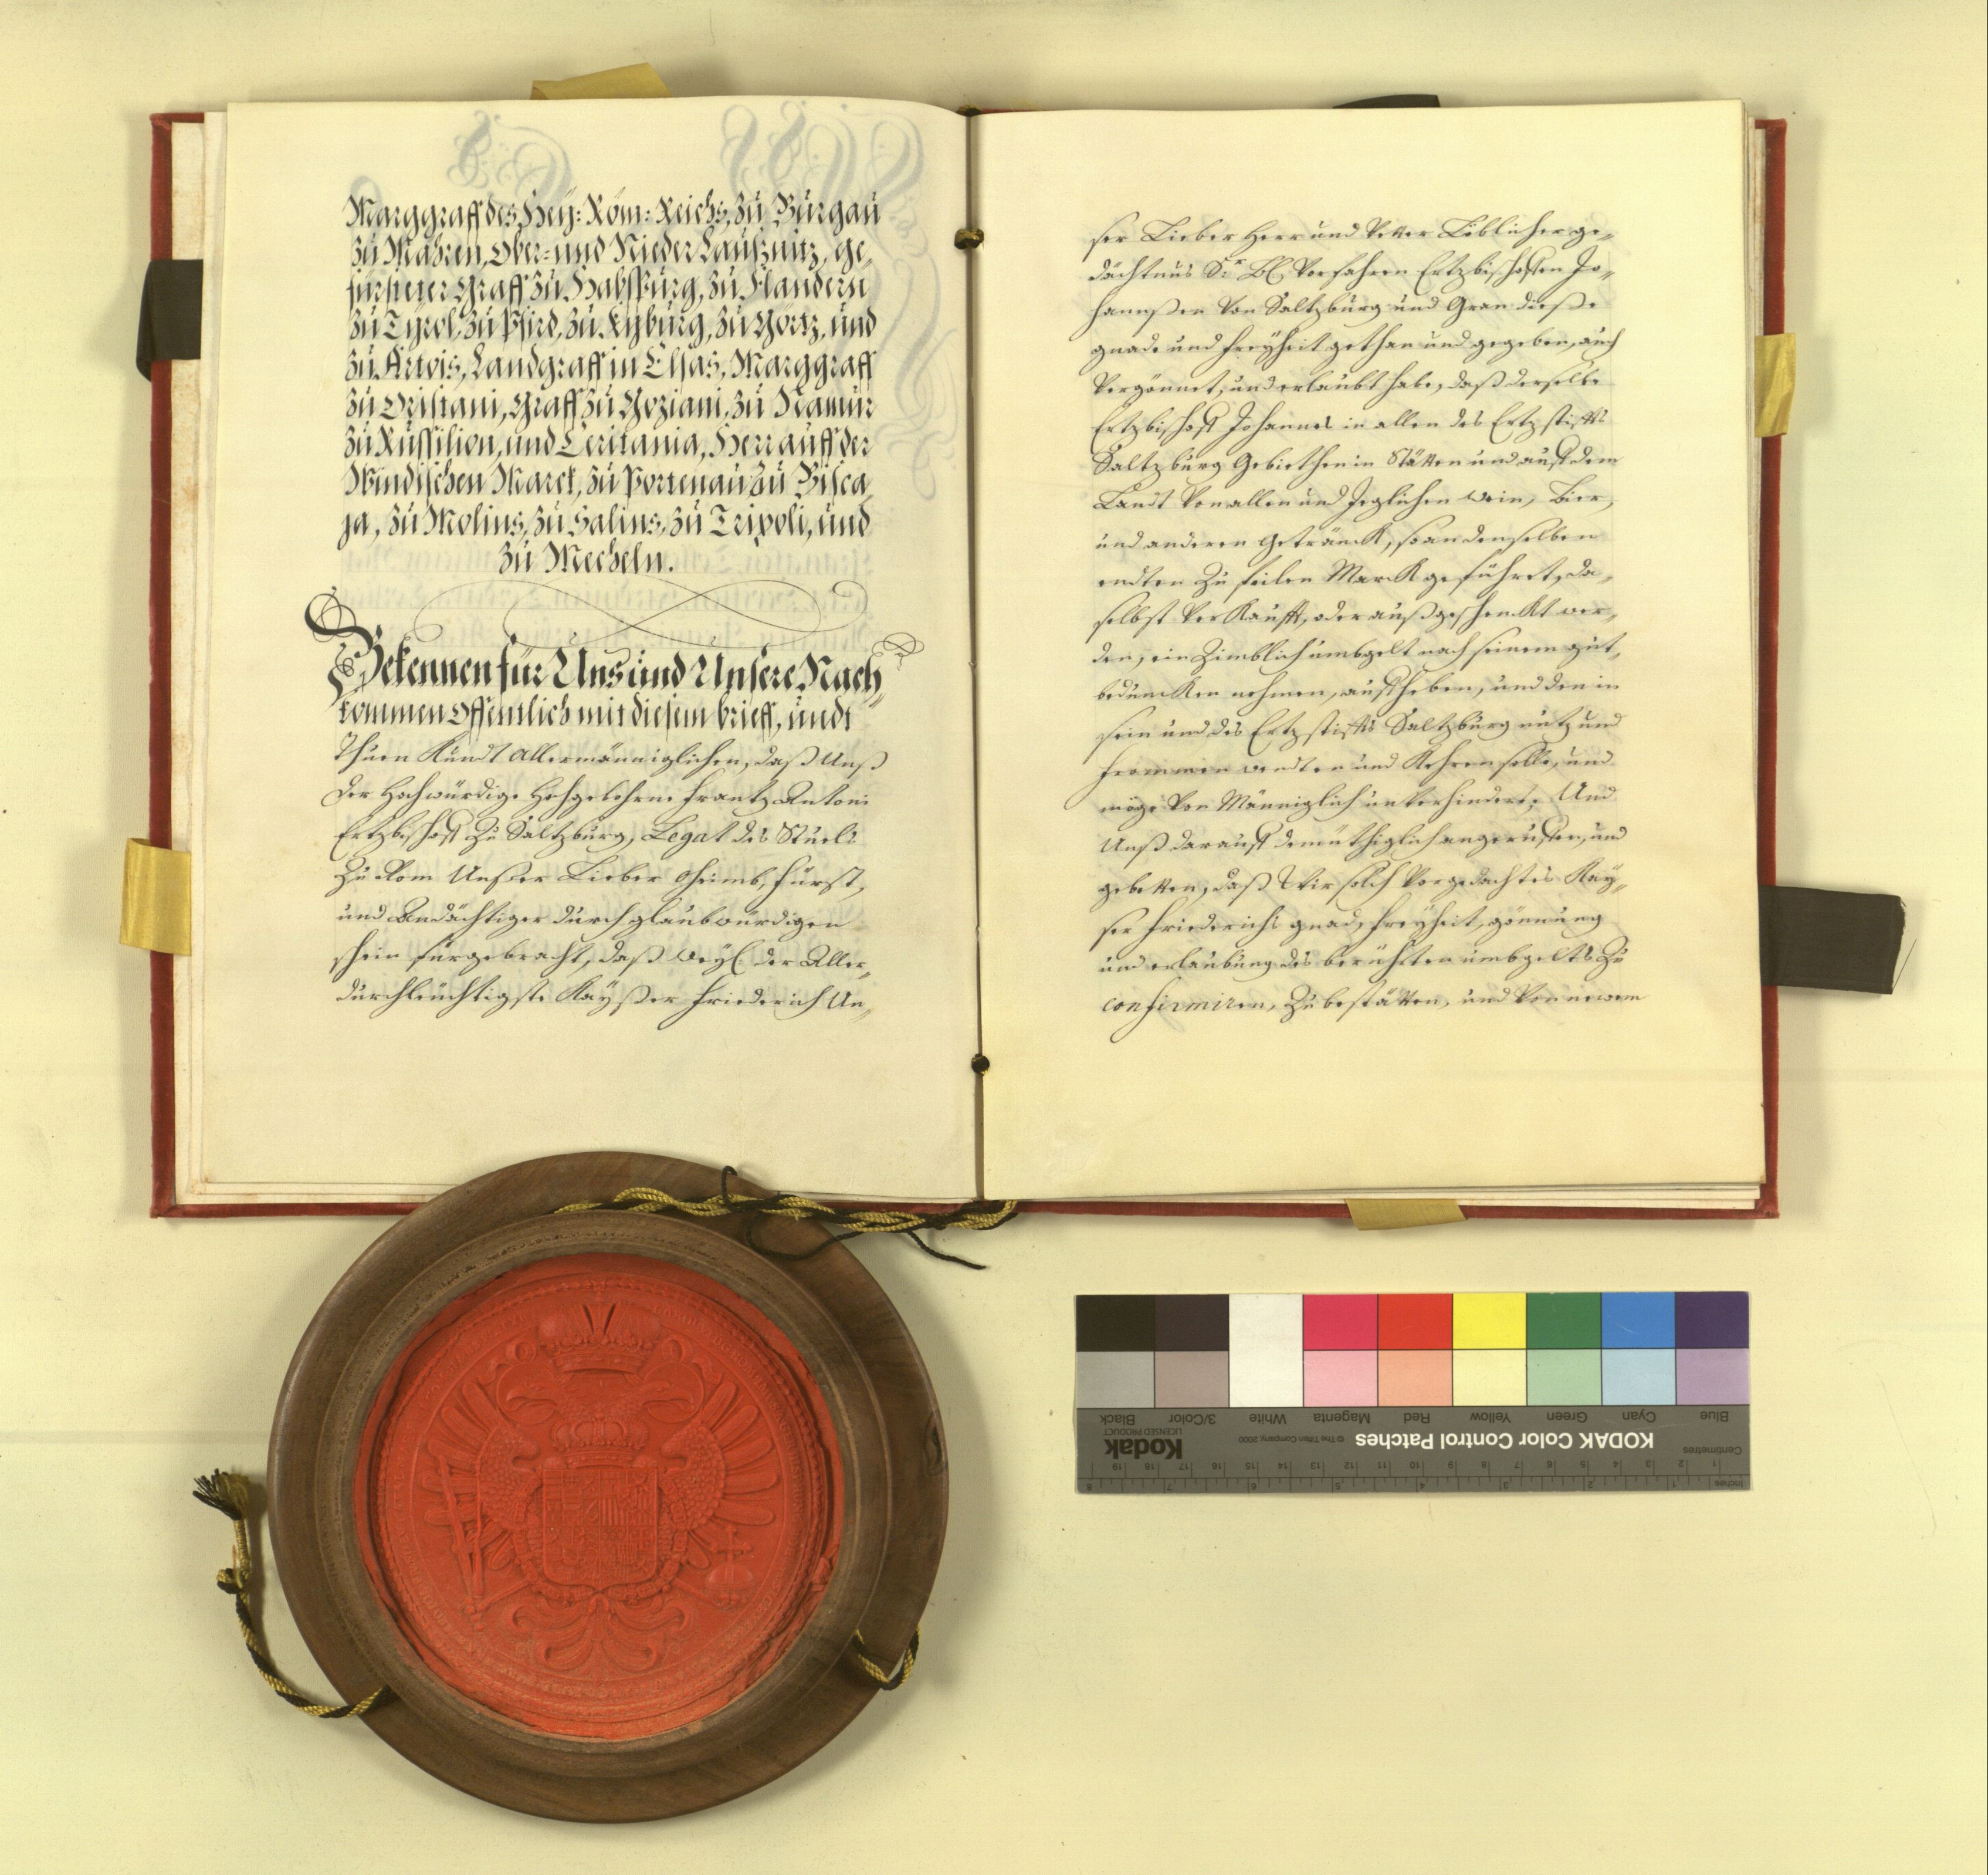 Marggraff des Heÿ: Röm: Reichs, zu Burgau
zu Mähren, Ober= und Nieder Laußnitz, ge„
fürsteter Graff zu Habspurg, zu Flandern
zu Tÿrol, zu Pfird, zu Kÿburg, zu Görtz, und
zu Artois, Landgraff in Elsas, Marggraff
zu Oristani, Graff zu Goziani, zu Namur
zu Russilion, und Ceritania, Herr auff der
Windischen Marck, zu Portenau zu Bisca„
ja, zu Molins, zu Salins, zu Tripoli, und
zu Mecheln.
Bekennen für Uns und Unsere Nach„
kommen offentlich mit diesem brieff, undt
Thuen Kundt Allermänniglichen, daß Unß
der Hochwürdige Hochgebohrne Frantz Antoni
Ertzbischoff Zu Saltzburg, Legat des Stuels
Zu Rom Unßer Lieber Oheimb, Fürst,
und Andächtiger durch glaubwürdigen
schein fürgebracht, daß Weÿl. der Aller„
durchleüchtigste Kaÿßer Friederich Un„
ser Lieber Herr und Vetter Löblicher ge„
dächtnus Sr. Vorfahren Ertzbischoffen Jo„
hannßen Von Saltzburg und Gran dieße
gnade und Freÿheit gethan und gegeben, auch
Vergönnet, und erlaubt habe, daß derselbe
Ertzbischoff Johannes in allen des Ertzstiffts
Saltzburg Gebiethen in Stätten und auff dem
Landt Von allen und Jeglichen Wein, Bier,
und anderen Getränck, so an denselben
endten Zu feilen Marck geführet, da„
selbst Verkaufft, oder außgeschenckt wer„
den, ein Zimblich umbgelt nach seinem gut„
beduncken nehmen, auffheben, und den in
sein und des Ertzstiffts Saltzburg nutz und
frommen wendten und Kehren solle, und
möge Von Männiglich unverhindert, Und
Unß darauff demüthiglich angeruffen, und
gebetten, daß Wir solch Vorgedachtes Kaÿ„
ser Friederichs gnad, Freÿheit, gönnung
und erlaubung des berührten umbgelts Zu
confirmiren, Zu bestätten, und Von newem
KODAK Color Control Patches
Kodak
LICENSED PRODUCT
© The Tiffen Company, 2000
Blue Cyan Green Yellow Red Magenta White 3/Color Black
Centimetres
1 2 3 4 5 6 7 8 9 10 11 12 13 14 15 16 17 18 19
Inches
1 2 3 4 5 6 7 8